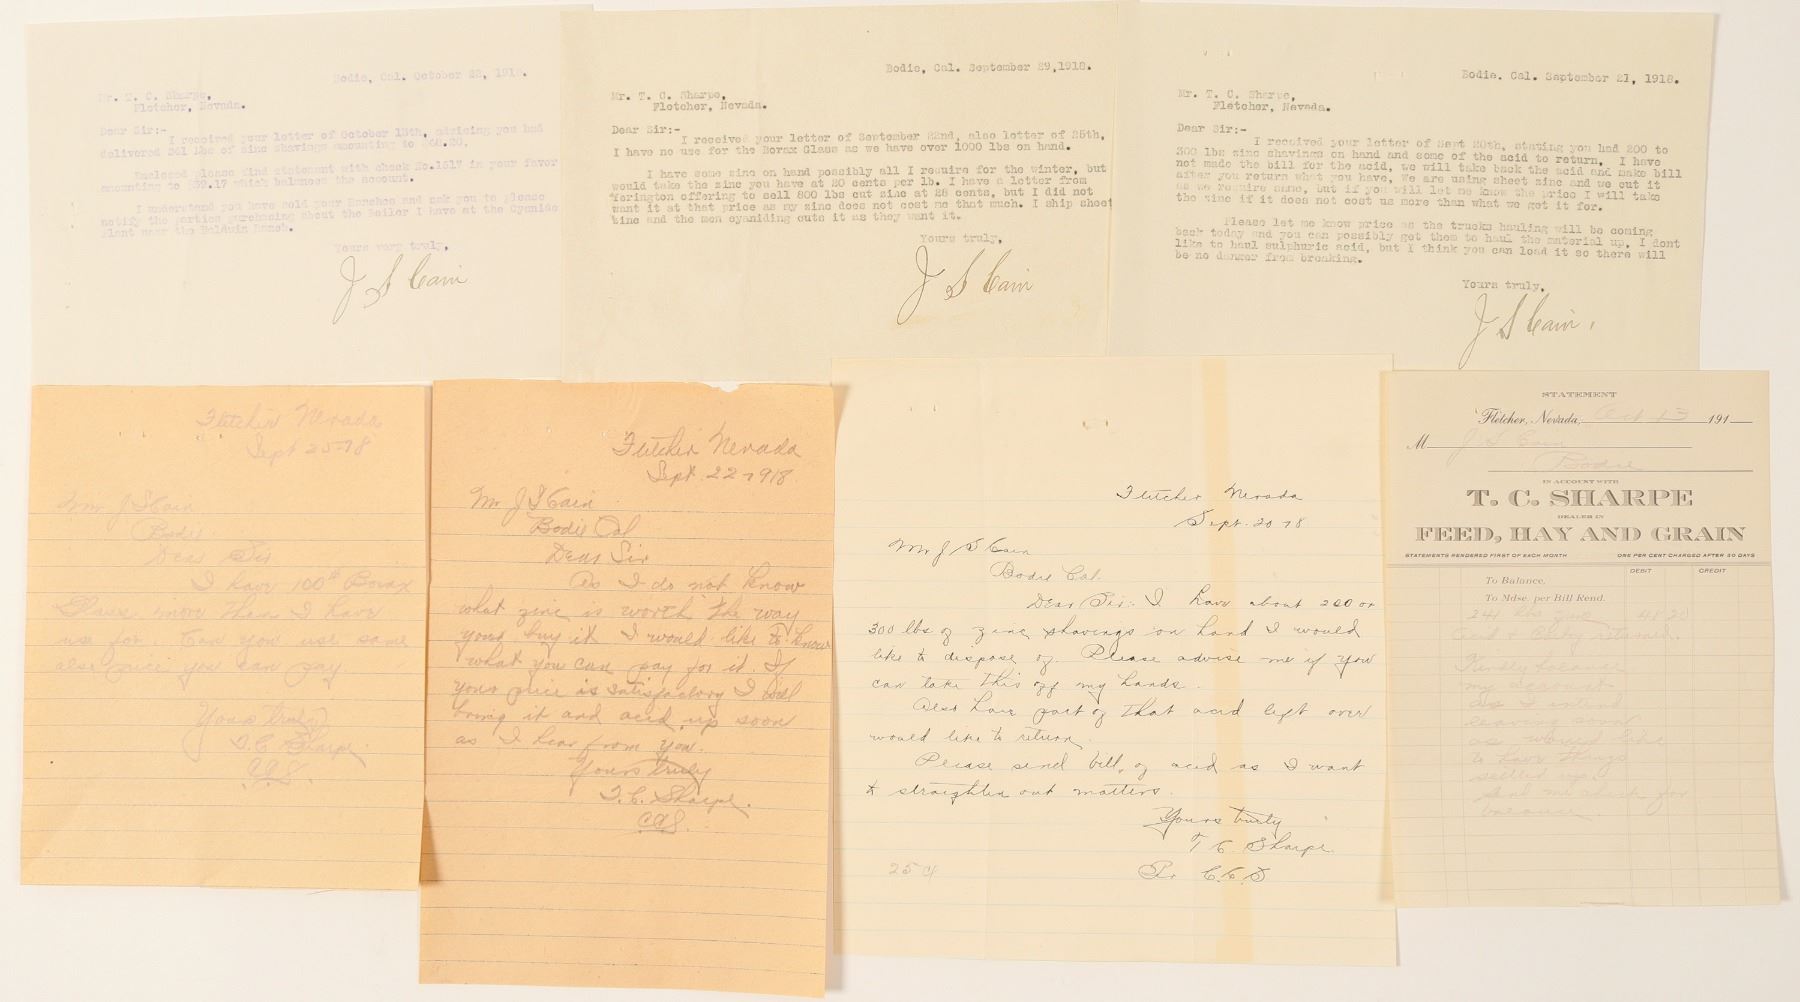 Bodie, Cal. October 22, 1918.
Mr. T. C. Sharpe,
Fletcher, Nevada.
Dear Sir:-
I received your letter of October 13th, advising you had
delivered 241 lbs of zinc shavings amounting to $48.20.
Enclosed please find statement with check No.1517 in your favor
amounting to $39.17 which balances the account.
I understand you have sold your Ranches and ask you to please
notify the parties purchasing about the Boiler I have at the Cyanide
Plant near the Baldwin Ranch.
Yours very truly,
J S Cain
Bodie, Cal. September 29,1918.
Mr. T. C. Sharpe,
Fletcher, Nevada.
Dear Sir:-
I received your letter of September 22nd, also letter of 25th,
I have no use for the Borax Glass as we have over 1000 lbs on hand.
I have some zinc on hand possibly all I require for the winter, but
would take the zinc you have at 20 cents per lb. I have a letter from
Yerington offering to sell 800 lbs cut zinc at 25 cents, but I did not
want it at that price as my zinc does not cost me that much. I ship sheet
zinc and the men cyaniding cuts it as they want it.
Yours truly,
J S Cain
Bodie. Cal. September 21, 1918.
Mr. T. C. Sharpe,
Fletcher, Nevada.
Dear Sir:-
I received your letter of Sept 20th, stating you had 200 to
300 lbs zinc shavings on hand and some of the acid to return, I have
not made the bill for the acid, we will take back the acid and make bill
after you return what you have. We are using sheet zinc and we cut it
as we require same, but if you will let me know the price I will take
the zinc if it does not cost us more than what we get it for.
Please let me know price as the trucks hauling will be coming
back today and you can possibly get them to haul the material up, I dont
like to haul sulphuric acid, but I think you can load it so there will
be no danger from breaking.
Yours truly,
J S Cain.
Fletcher Nevada
Sept 25-18
Mr. J S Cain
Bodie
Dear Sir
I have 100# Borax
Glass more than I have
use for. Can you use same
also price you can pay.
Yours truly
T. C. Sharpe.
CAS.
Fletcher Nevada
Sept. 22-1918.
Mr J S Cain
Bodie Cal
Dear Sir
As I do not know
what zinc is worth the way
you buy it I would like to know
what you can pay for it. If
your price is satisfactory I will
bring it and acid up soon
as I hear from you.
Yours truly
T. C. Sharpe.
CAS.
Fletcher Nevada
Sept. 20 18
Mr J S Cain
Bodie Cal.
Dear Sir: I have about 200 or
300 lbs of zinc shavings on hand I would
like to dispose of. Please advise me if you
can take this off my hands.
Also have part of that acid left over
would like to return.
Please send bill of acid as I want
to straighten out matters.
Yours truly
T C. Sharpe.
Per C.C.S
25 ¢
STATEMENT
Fletcher, Nevada, Oct 13 191
M J S Cain
Bodie
IN ACCOUNT WITH
T. C. SHARPE
DEALER IN
FEED, HAY AND GRAIN
STATEMENTS RENDERED FIRST OF EACH MONTH ONE PER CENT CHARGED AFTER 30 DAYS
DEBIT CREDIT
To Balance,
To Mdse. per Bill Rend.
241 lbs zinc 48 20
Acid returned.
Kindly balance
my account
as I intend
leaving soon
as would like
to have things
settled up.
Send me check for
balance